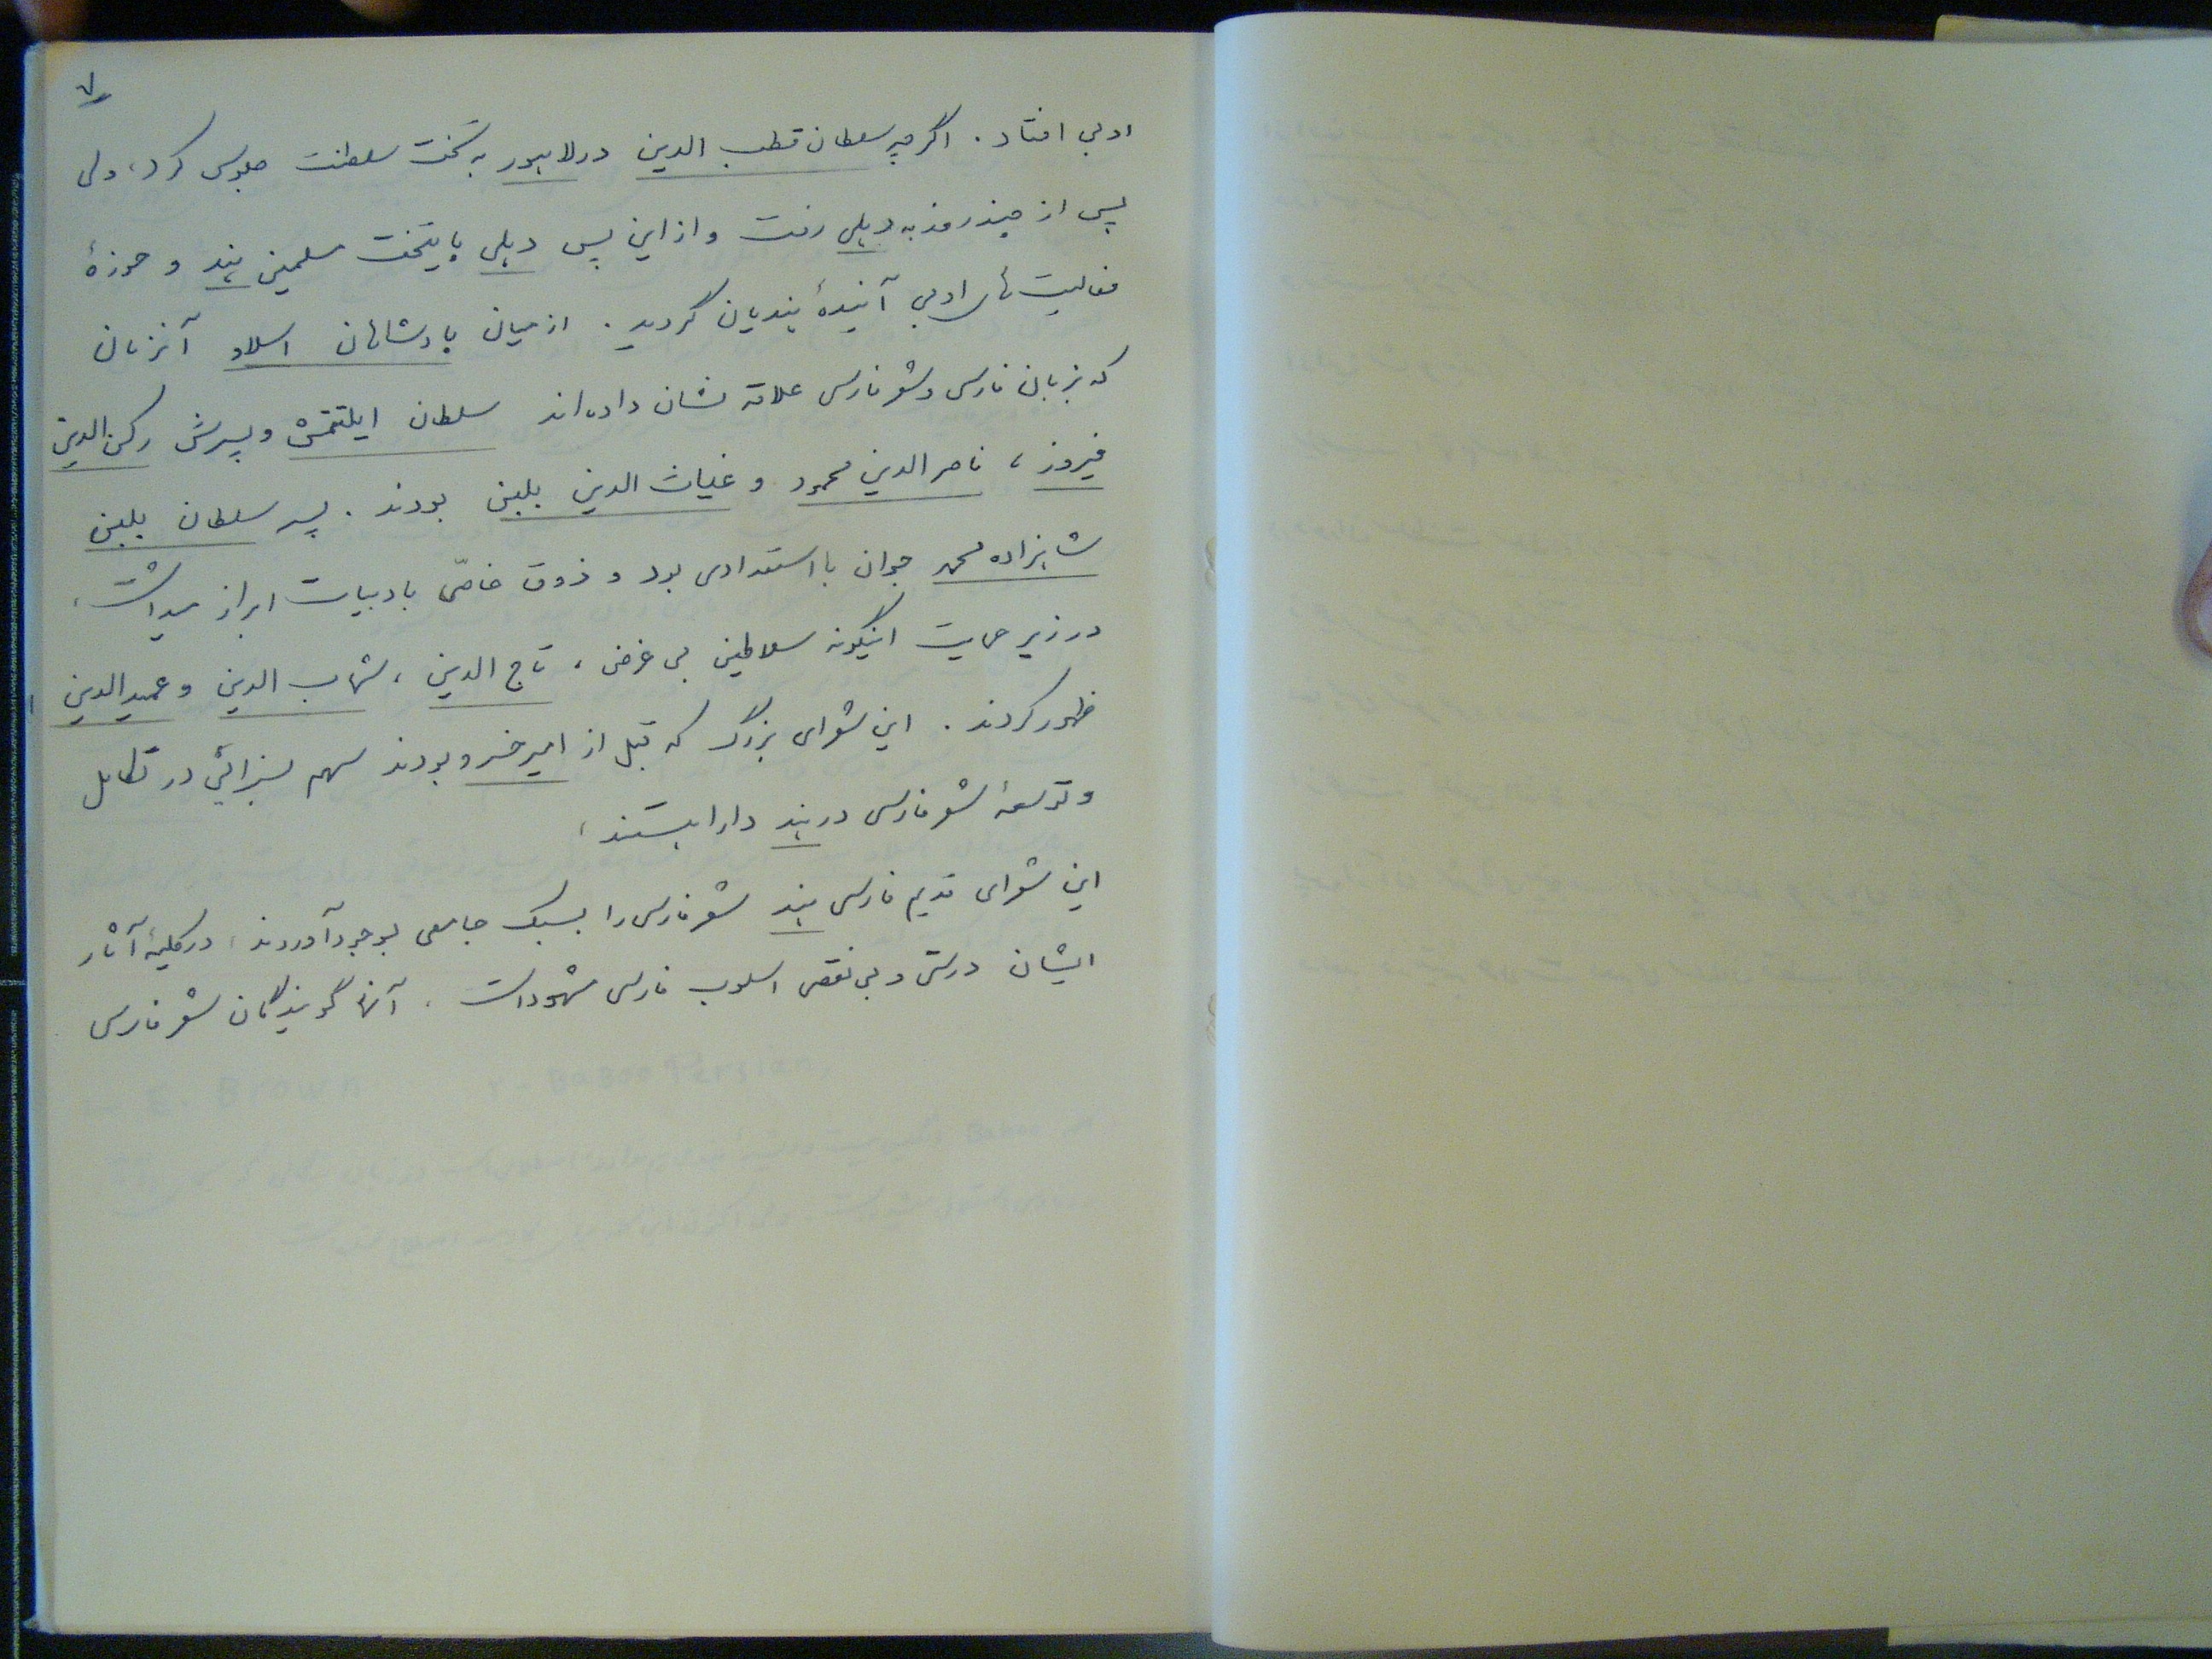 ۷
ادبی افتاد. اگرچه سلطان قطب الدین در لاهور به تخت سلطنت جلوس کرد، ولی
پس از چند روز به دهلی رفت و از این پس دهلی پایتخت مسلمین هند و حوزهٔ
فعالیت های ادبی آیندهٔ هندیان گردید. از میان پادشاهان اسلام آنزمان
که بزبان فارسی و شعر فارسی علاقه نشان داده‌اند سلطان ایلتتمش و پسرش رکن الدین
فیروز، ناصر الدین محمود و غیاث الدین بلبن بودند. پسر سلطان بلبن
شاهزاده محمد جوان با استعدادی بود و ذوق خاصّی بادبیات ابراز میداشت،
در زیر حمایت اینگونه سلاطین بی غرض، تاج الدین، شهاب الدین و عمید الدین
ظهور کردند. این شعرای بزرگ که قبل از امیر خسرو بودند سهم بسزائی در تکامل
و توسعهٔ شعر فارسی در هند دارا هستند،
این شعرای قدیم فارسی هند شعر فارسی را بسبک جامعی بوجود آوردند، در کلیهٔ آثار
ایشان درستی و بی نقصی اسلوب فارسی مشهود است. آنها گویندگان شعر فارسی
E. Brown ۱ - Baboo Persian